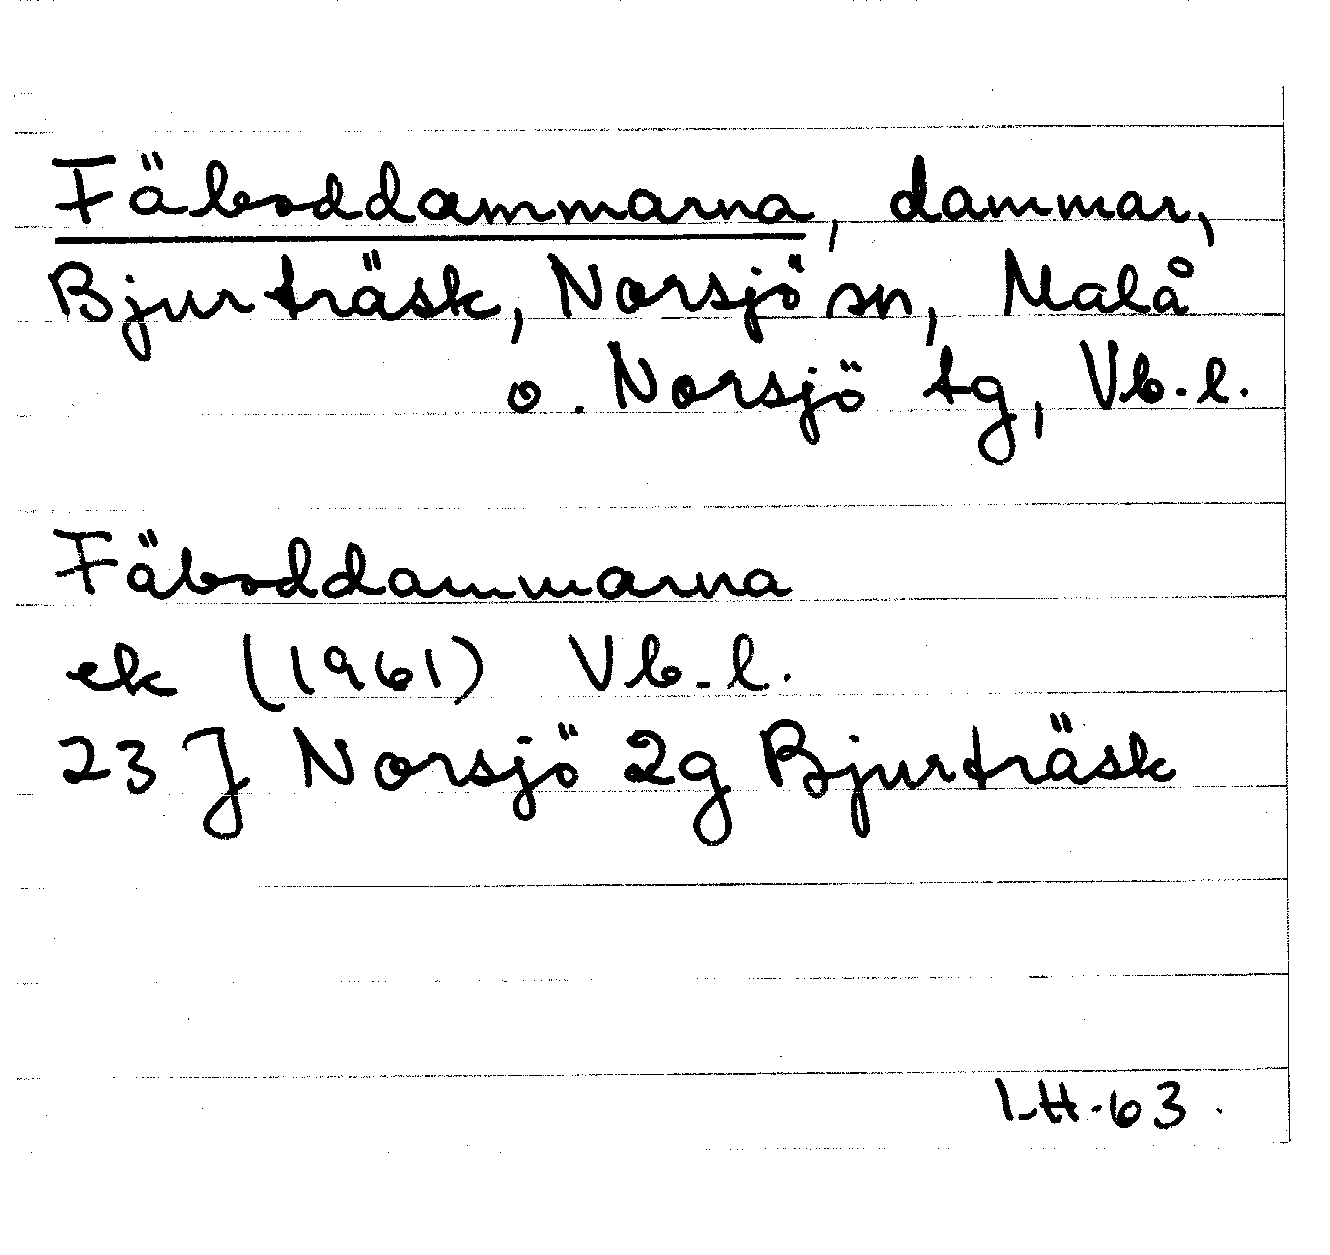 Fäboddammarna, dammar,
Bjurträsk, Norsjö sn, Malå
o. Norsjö tg, Vb.l.
Fäboddammarna
ek (1961) Vb.l.
23 J Norsjö 2g Bjurträsk
LH-63.